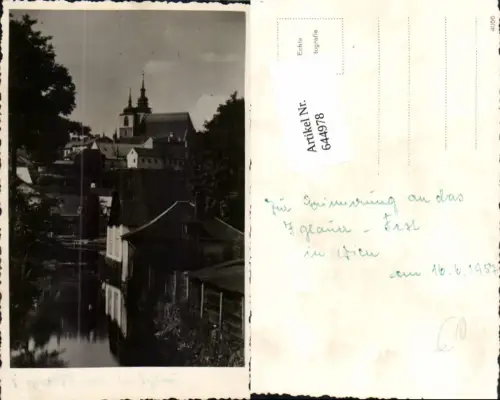 Echte
tografie
Artikel Nr.
644978
Zur Erinnerung an das
Iglauer - Fest
in Wien
am 16.6.1957